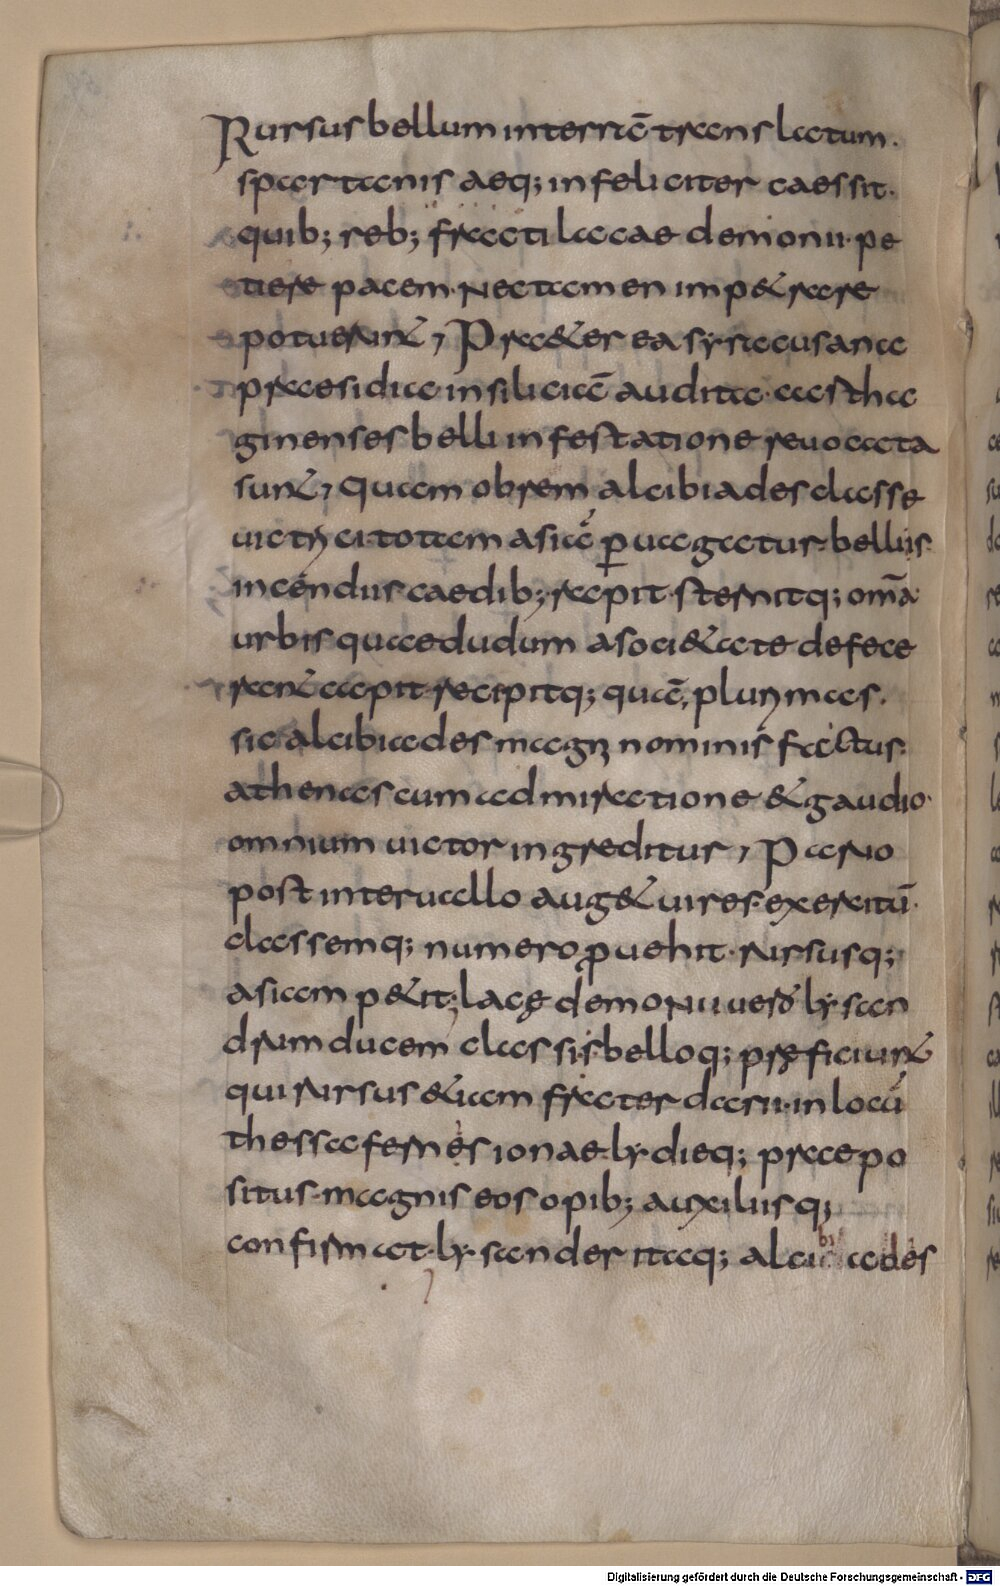 Rursus bellum interrā translatum.
spartanis aeq; infeliciter caessit.
quib; reb; fracti lacae demonii. pe
tiere pacem. Nec tamen imp&rare
potuerunt; Praet&er ea syracusana
praesidia in siliciā audita. carstha
ginenses belli infestatione reuocata
sunt; Quam obrem alcibiades classe
uictrici. totam asiā puagatur. bellis.
incendiis. caedib; rapit. sternitq; om̄a
urbis quae dudum a soci&ate defece
rant capit. recipitq; quā plurimas.
sic alcibiades magni nominis factus.
athenas cum admiratione & gaudio.
omnium uictor ingreditur; Paruo
post interuallo aug& uires. exercitū.
classemq; numero puehit. rursusq;
asiam p&it; lace demonii uero lysan
drum ducem classis. belloq; preficiunt
qui rursus &iam frater darii. in locū
thessafernes ionae. lydieq; praepo
situs. magnis eos opib; auxiliisq;
confirmat. lysander itaq; alcibiades
Digitalisierung gefördert durch die Deutsche Forschungsgemeinschaft - DFG